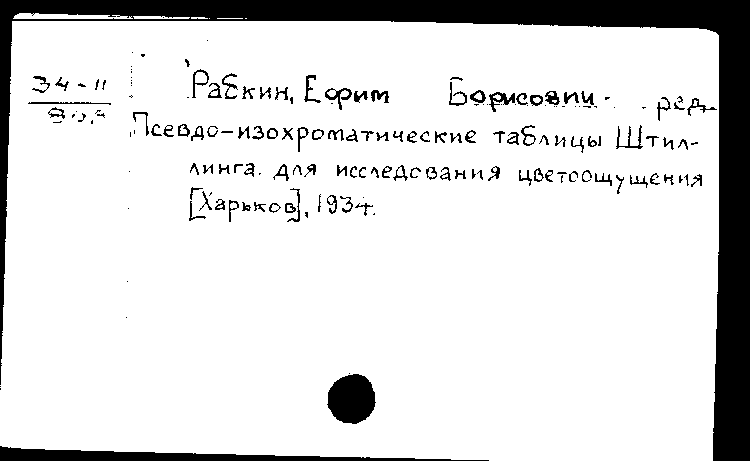 34-11
Рабкин, Ефим Борисович ред.
Псевдо-изохроматические таблицы Штил-
линга для исследования цветоощущения
[Харьков], 1934.